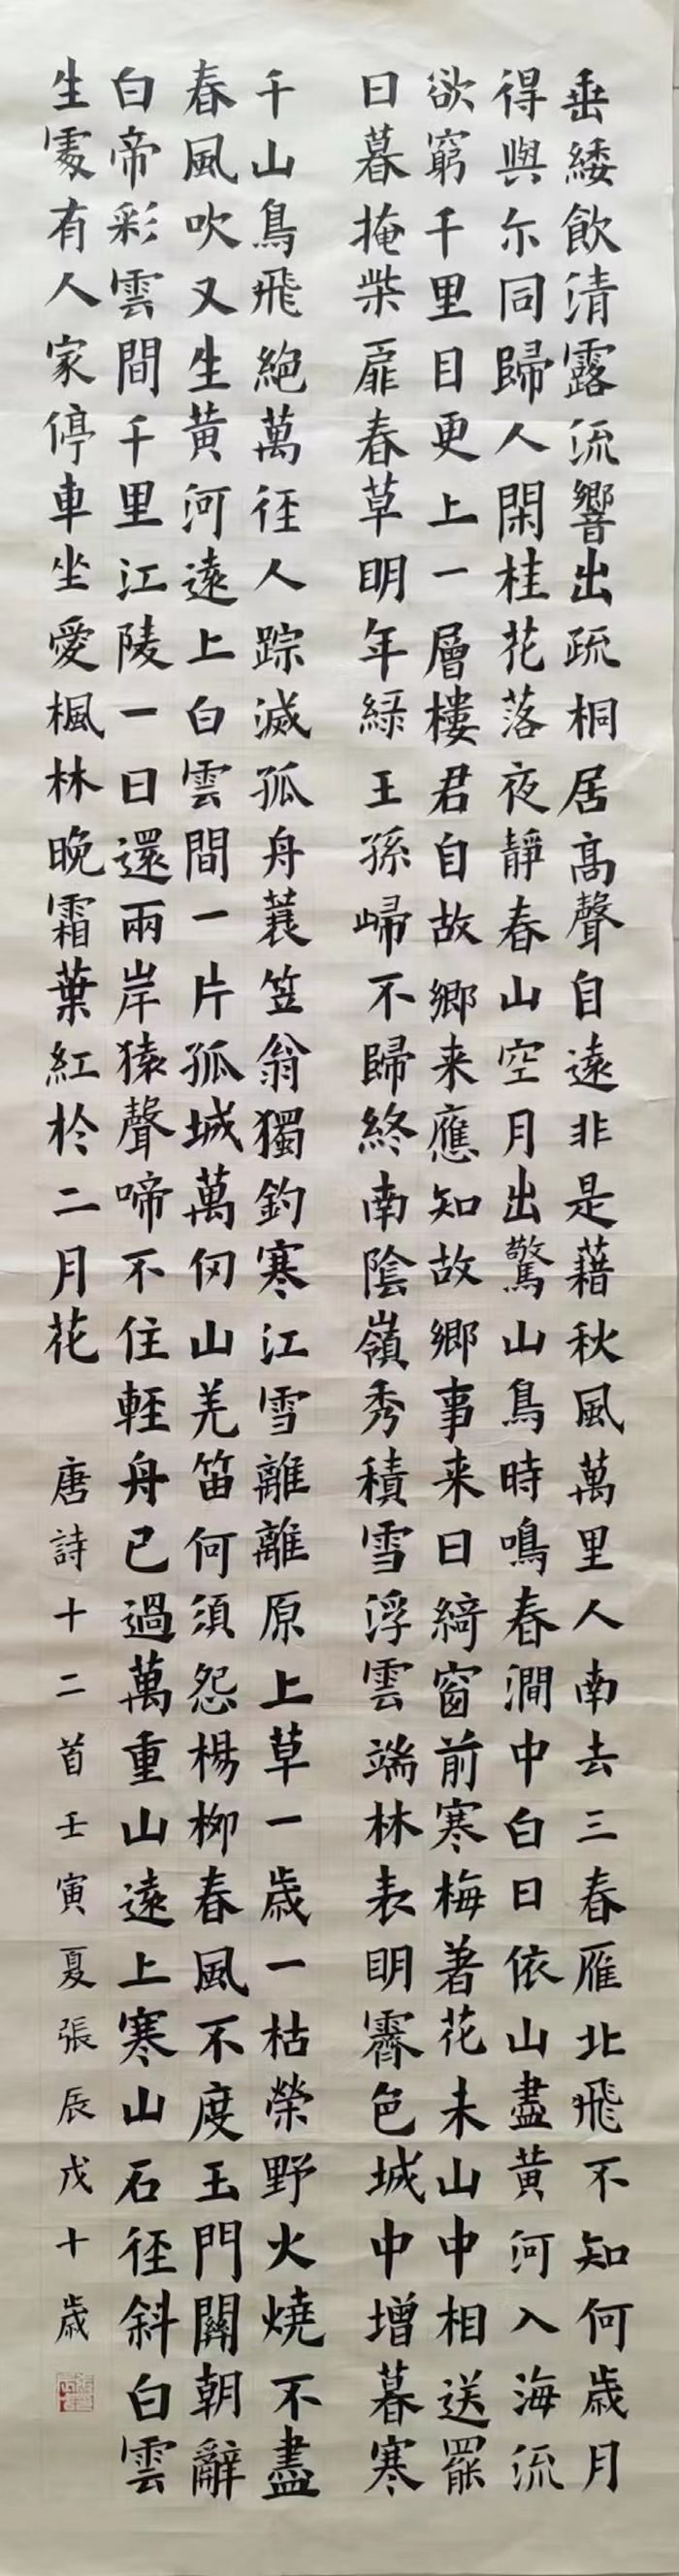 垂緌飲清露流響出疏桐居高聲自遠非是藉秋風萬里人南去三春雁北飛不知何歲月
得與尔同歸人閑桂花落夜靜春山空月出驚山鳥時鳴春澗中白日依山盡黃河入海流
欲窮千里目更上一層樓君自故鄉来應知故鄉事来日綺窗前寒梅著花未山中相送罷
日暮掩柴扉春草明年綠王孫歸不歸終南陰嶺秀積雪浮雲端林表明霽色城中增暮寒
千山鳥飛絕萬徑人踪滅孤舟蓑笠翁獨釣寒江雪離離原上草一歲一枯榮野火燒不盡
春風吹又生黃河遠上白雲間一片孤城萬仞山羌笛何須怨楊柳春風不度玉門關朝辭
白帝彩雲間千里江陵一日還兩岸猿聲啼不住輕舟已過萬重山遠上寒山石徑斜白雲
生處有人家停車坐愛楓林晚霜葉紅於二月花
唐詩十二首壬寅夏張辰戊十歲